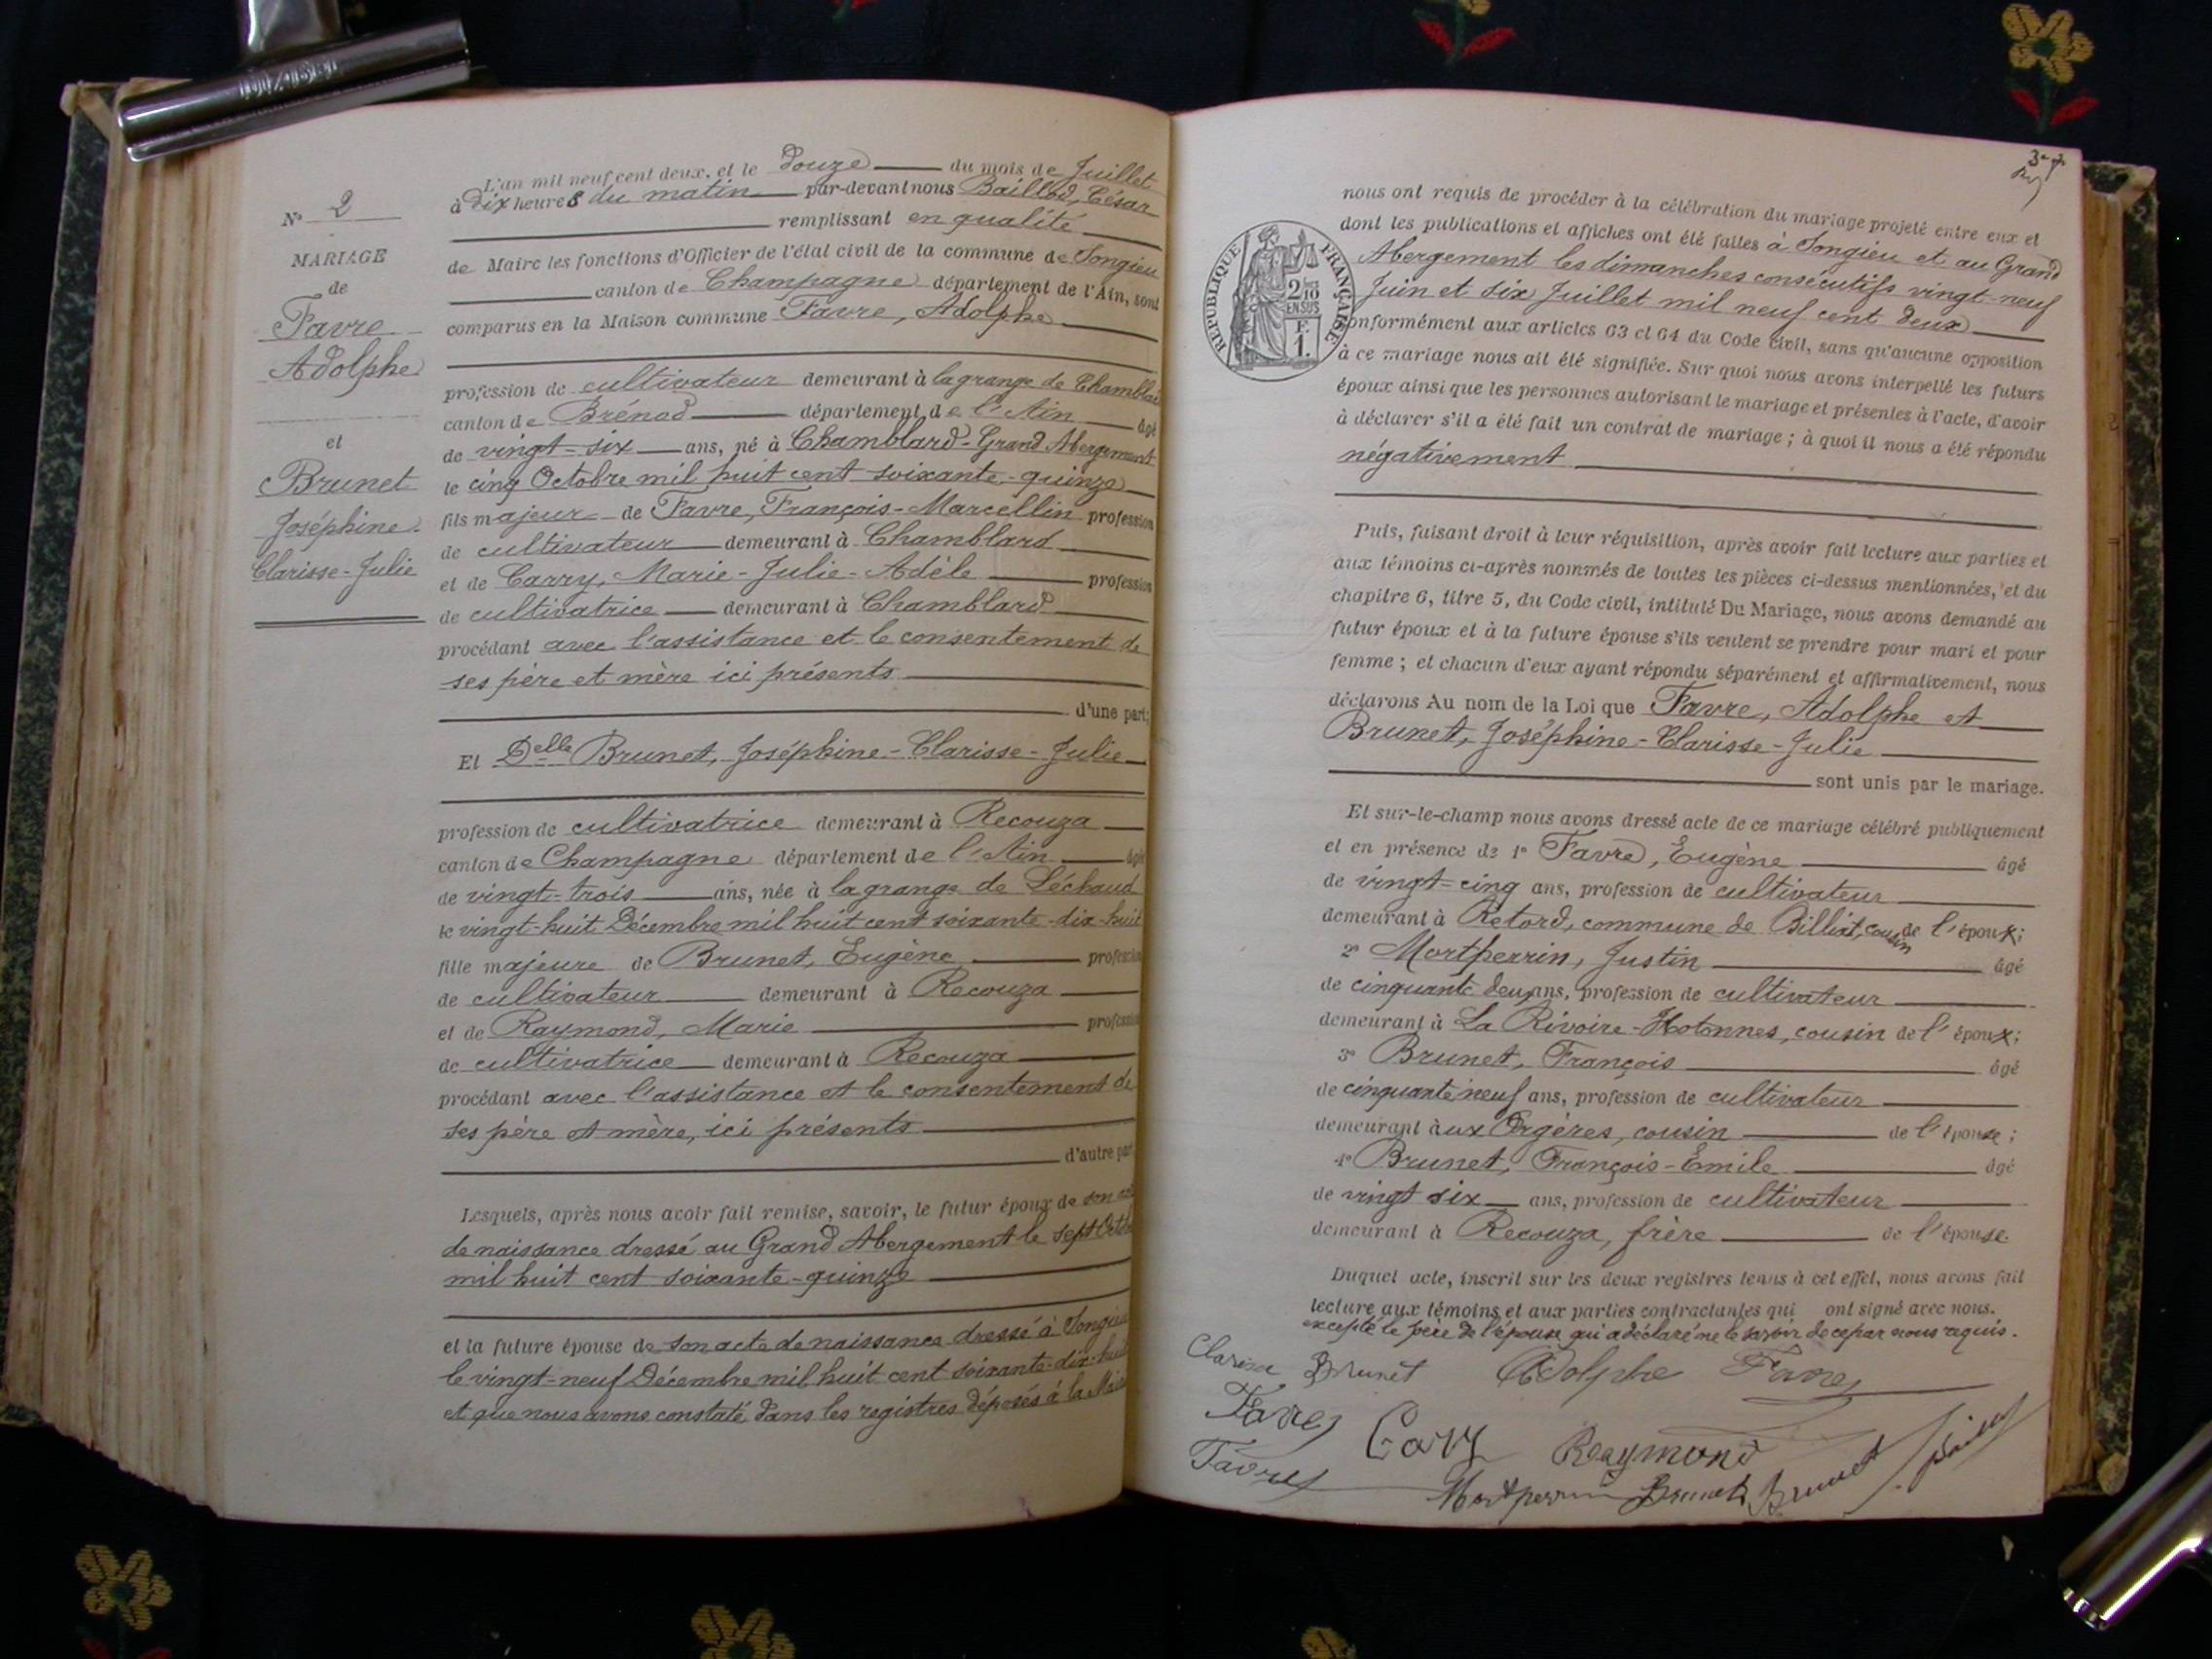 L'an mil neuf cent deux, et le douze du mois de Juillet
à dix heures du matin par-devant nous Baillod, César
remplissant en qualité
de Maire les fonctions d'Officier de l'état civil de la commune de Songieu
canton de Champagne département de l'Ain, sont
comparus en la Maison commune Favre, Adolphe
profession de cultivateur demeurant à la grange de Chamblard
canton de Brénod département de l'Ain âgé
de vingt-six ans, né à Chamblard-Grand Abergement
le cinq Octobre mil huit cent soixante-quinze
fils majeur de Favre, François-Marcellin profession
de cultivateur demeurant à Chamblard
et de Carry, Marie-Julie-Adèle profession
de cultivatrice demeurant à Chamblard
procédant avec l'assistance et le consentement de
ses père et mère ici présents
d'une part;
Et Delle Brunet, Joséphine-Clarisse-Julie
profession de cultivatrice demeurant à Recouza
canton de Champagne département de l'Ain âgée
de vingt-trois ans, née à la grange de Léchaud
le vingt-huit Décembre mil huit cent soixante-dix-huit
fille majeure de Brunet, Eugène profession
de cultivateur demeurant à Recouza
et de Raymond, Marie profession
de cultivatrice demeurant à Recouza
procédant avec l'assistance et le consentement de
ses père et mère, ici présents
d'autre part
Lesquels, après nous avoir fait remise, savoir, le futur époux de son
de naissance dressé au Grand Abergement le sept Octobre
mil huit cent soixante-quinze
et la future épouse de son acte de naissance dressé à Songieu
le vingt-neuf Décembre mil huit cent soixante-dix-huit
et que nous avons constaté dans les registres déposés à la Mairie
No 2
MARIAGE
de
Favre
Adolphe
et
Brunet
Joséphine
Clarisse-Julie
nous ont requis de procéder à la célébration du mariage projeté entre eux et
dont les publications et affiches ont été faites à Songieu et au Grand
Abergement les dimanches consécutifs vingt-neuf
Juin et six Juillet mil neuf cent deux
conformément aux articles 63 et 64 du Code civil, sans qu'aucune opposition
à ce mariage nous ait été signifiée. Sur quoi nous avons interpellé les futurs
époux ainsi que les personnes autorisant le mariage et présentes à l'acte, d'avoir
à déclarer s'il a été fait un contrat de mariage; à quoi il nous a été répondu
négativement
Puis, faisant droit à leur réquisition, après avoir fait lecture aux parties et
aux témoins ci-après nommés de toutes les pièces ci-dessus mentionnées, et du
chapitre 6, titre 5, du Code civil, intitulé Du Mariage, nous avons demandé au
futur époux et à la future épouse s'ils veulent se prendre pour mari et pour
femme; et chacun d'eux ayant répondu séparément et affirmativement, nous
déclarons Au nom de la Loi que Favre, Adolphe et
Brunet, Joséphine-Clarisse-Julie
sont unis par le mariage.
Et sur-le-champ nous avons dressé acte de ce mariage célébré publiquement
et en présence de 1° Favre, Eugène âgé
de vingt-cinq ans, profession de cultivateur
demeurant à Retord, commune de Billiat, cousin de l'époux;
2° Mortperrin, Justin âgé
de cinquante deux ans, profession de cultivateur
demeurant à La Rivoire-Hotonnes, cousin de l'époux;
3° Brunet, François âgé
de cinquante neuf ans, profession de cultivateur
demeurant aux Orgères, cousin de l'épouse;
4° Brunet, François-Emile âgé
de vingt six ans, profession de cultivateur
demeurant à Recouza, frère de l'épouse
Duquel acte, inscrit sur les deux registres tenus à cet effet, nous avons fait
lecture aux témoins et aux parties contractantes qui ont signé avec nous.
excepté le père de l'épouse qui a déclaré ne le savoir de ce par nous requis.
Clarisse Brunet Adolphe Favre
Favre Carry Raymond
Favre Mortperrin Brunet Brunet Baillod
RÉPUBLIQUE FRANÇAISE
2/10
EN SUS
F.
1.